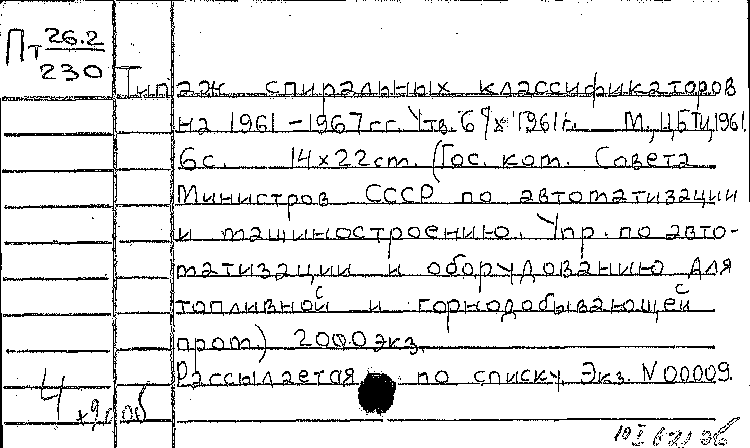 Пт 26.2
230
Типаж спиральных классификаторов
на 1961-1967 гг. Утв. 6/X 1961 г. М., ЦБТИ, 1961.
6с. 14x22 см. (Гос. ком. Совета
Министров СССР по автоматизации
и машиностроению. Упр. по авто-
матизации и оборудованию для
топливной и горнодобывающей
пром.) 2000 экз.
Рассылается по списку. Экз. N 00009.
4